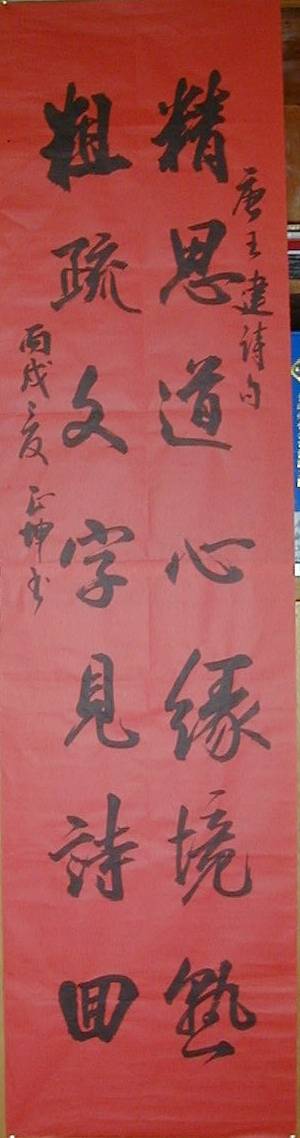 唐王建詩句
精思道心緣境熟
粗疏文字見詩回
丙戌之夏正坤书